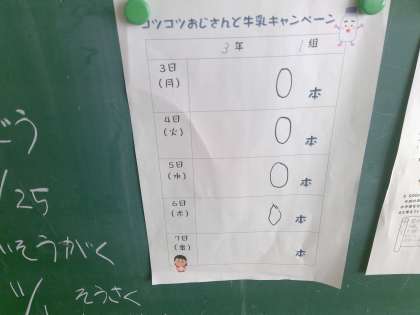 コツコツおじさんと牛乳キャンペーン
3年 1組
3日
(月) 0本
4日
(火) 0本
5日
(水) 0本
6日
(木) 0本
7日
(金) 本
どう
/25
そうがく
そうさく